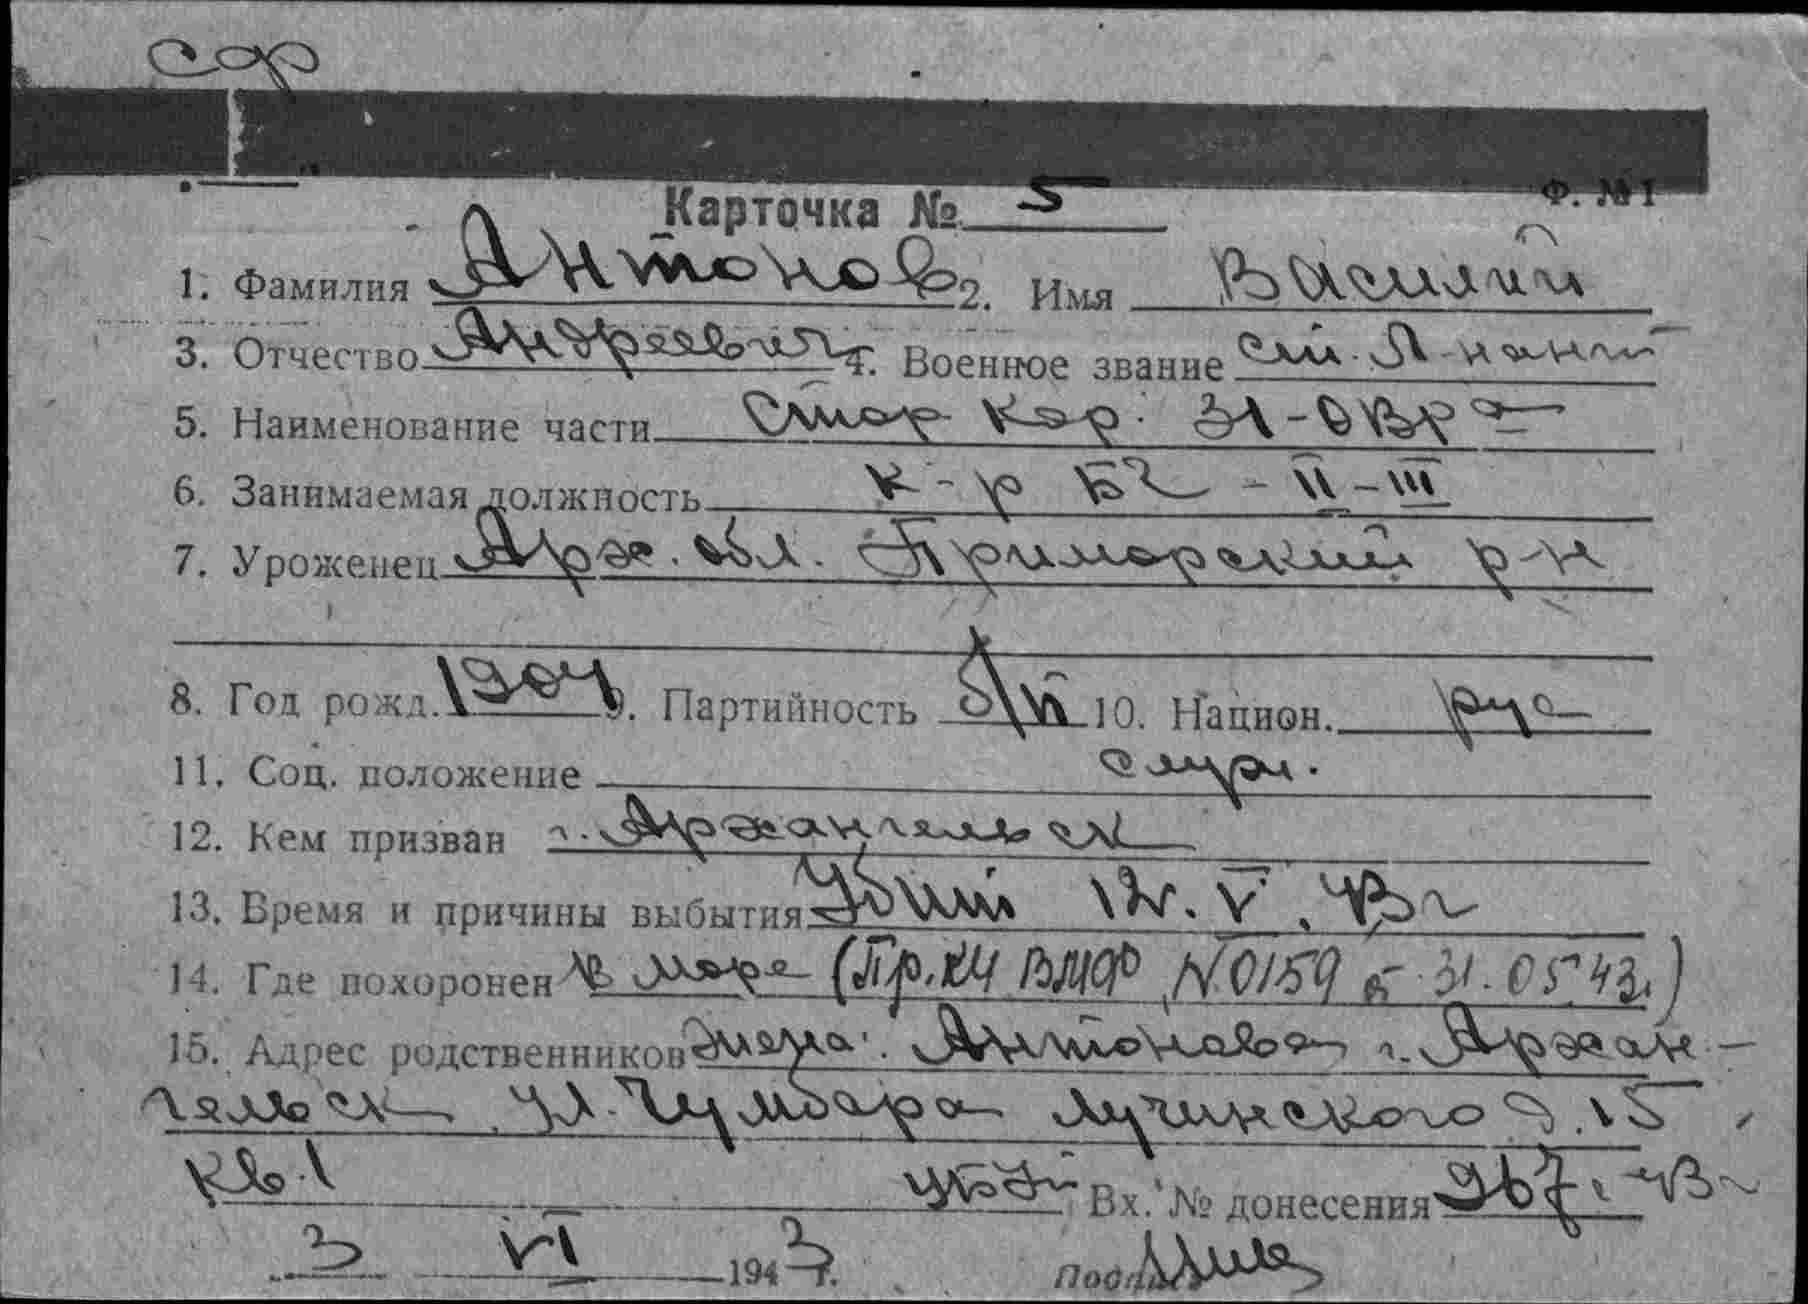 Сор
Ф. №1
Карточка № 5
1. Фамилия Антонов 2. Имя Василий
3. Отчество Андреевич 4. Военное звание
5. Наименование части Стор. кор. 31-ОВРа
6. Занимаемая должность к-р БЧ-II-III
7. Уроженец Арх. обл. Приморский р-н
8. Год рожд. 1904 9. Партийность б/п 10. Национ. рус
11. Соц. положение служ.
12. Кем призван г. Архангельск
13. Время и причины выбытия Убит V. 43 г
14. Где похоронен в море (Пр. КЧ ВМФ N 0159 б 31.05.43г.)
15. Адрес родственников жена: Антонова г. Архан-
гельск, ул. Чумбара Лучинского д. 15,
кв. 1 Вх. № донесения 43 г
3 VI 1943 г.